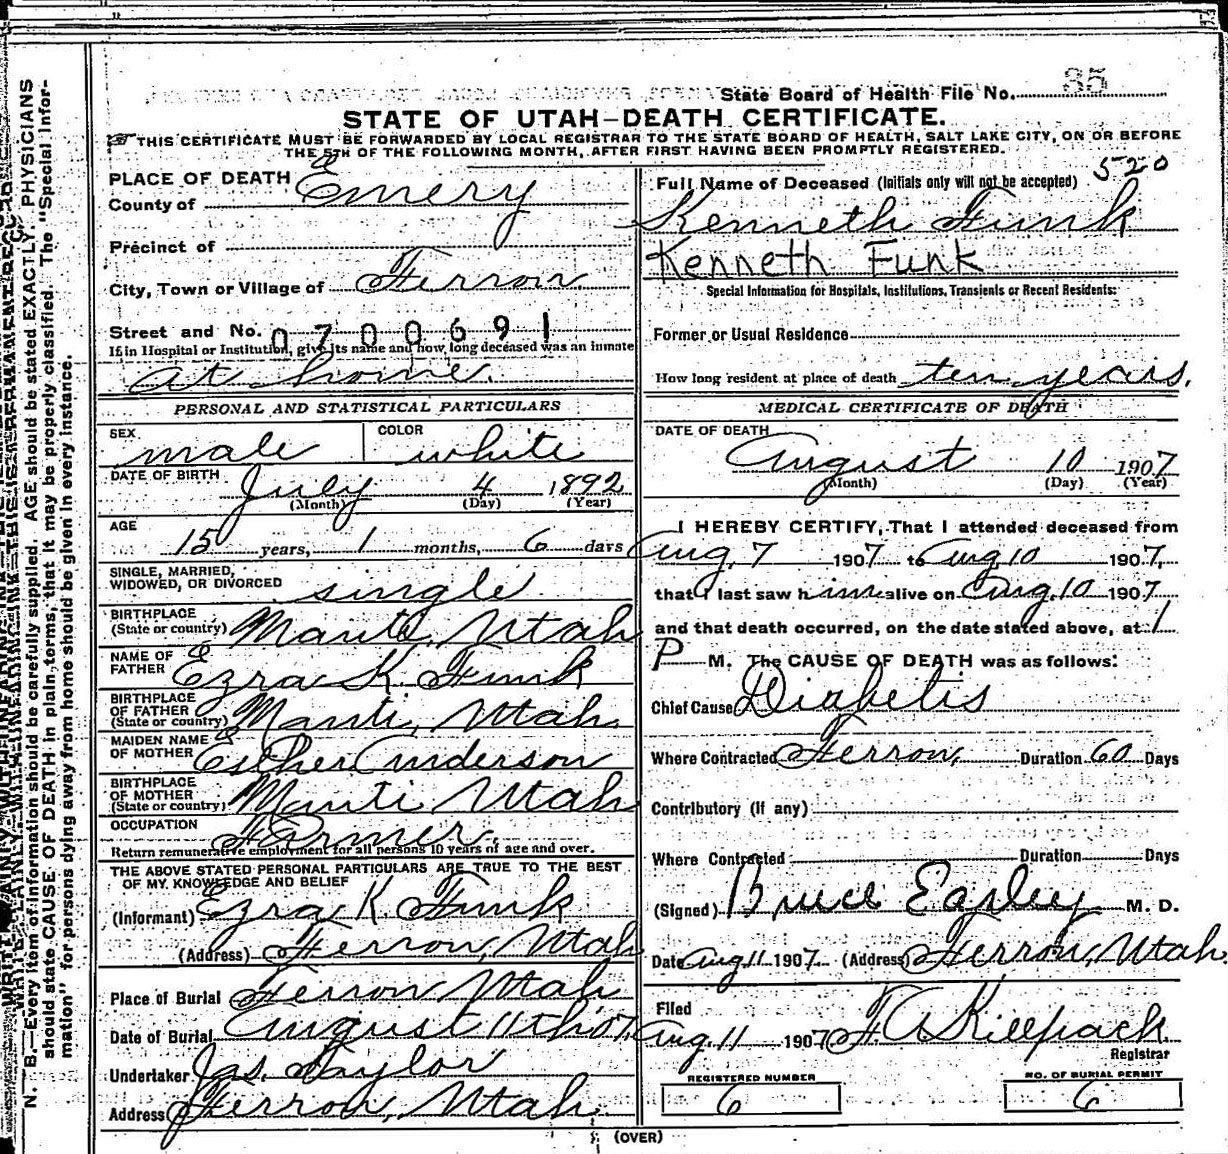 State Board of Health File No. 35
STATE OF UTAH—DEATH CERTIFICATE.
THIS CERTIFICATE MUST BE FORWARDED BY LOCAL REGISTRAR TO THE STATE BOARD OF HEALTH, SALT LAKE CITY, ON OR BEFORE
THE 5TH OF THE FOLLOWING MONTH, AFTER FIRST HAVING BEEN PROMPTLY REGISTERED.
PLACE OF DEATH
County of Emery
Precinct of
City, Town or Village of Ferron
Street and No. 0700691
If in Hospital or Institution, give its name and how long deceased was an inmate
at home.
PERSONAL AND STATISTICAL PARTICULARS
SEX male COLOR white
DATE OF BIRTH July 4 1892
(Month) (Day) (Year)
AGE
15 years, 1 months, 6 days
SINGLE, MARRIED,
WIDOWED, OR DIVORCED single
BIRTHPLACE
(State or country) Manti, Utah
NAME OF
FATHER Ezra K. Funk
BIRTHPLACE
OF FATHER
(State or country) Manti, Utah.
MAIDEN NAME
OF MOTHER Esther Anderson
BIRTHPLACE
OF MOTHER
(State or country) Manti Utah
OCCUPATION Farmer.
Return remunerative employment for all persons 10 years of age and over.
THE ABOVE STATED PERSONAL PARTICULARS ARE TRUE TO THE BEST
OF MY KNOWLEDGE AND BELIEF
(Informant) Ezra K. Funk
(Address) Ferron, Utah
Place of Burial Ferron Utah
Date of Burial August 11th 07.
Undertaker Jas. Taylor
Address Ferron, Utah.
520
Full Name of Deceased (Initials only will not be accepted)
Kenneth Funk
Kenneth Funk
Special Information for Hospitals, Institutions, Transients or Recent Residents:
Former or Usual Residence
How long resident at place of death ten years.
MEDICAL CERTIFICATE OF DEATH
DATE OF DEATH
August 10 1907
(Month) (Day) (Year)
I HEREBY CERTIFY, That I attended deceased from
Aug. 7 1907 to Aug. 10 1907,
that I last saw him alive on Aug. 10 1907
and that death occurred, on the date stated above, at 1
P M. The CAUSE OF DEATH was as follows:
Chief Cause Diabetis
Where Contracted Ferron, Duration 60 Days
Contributory (if any)
Where Contracted Duration Days
(Signed) Bruce Easley M. D.
Date Aug 11 1907 (Address) Ferron, Utah.
Filed
Aug. 11 1907 F A Killpack
Registrar
REGISTERED NUMBER
6
NO. OF BURIAL PERMIT
6
(OVER)
N. B.—Every item of information should be carefully supplied. AGE should be stated EXACTLY. PHYSICIANS
should state CAUSE OF DEATH in plain terms, that it may be properly classified. The "Special Infor-
mation" for persons dying away from home should be given in every instance.